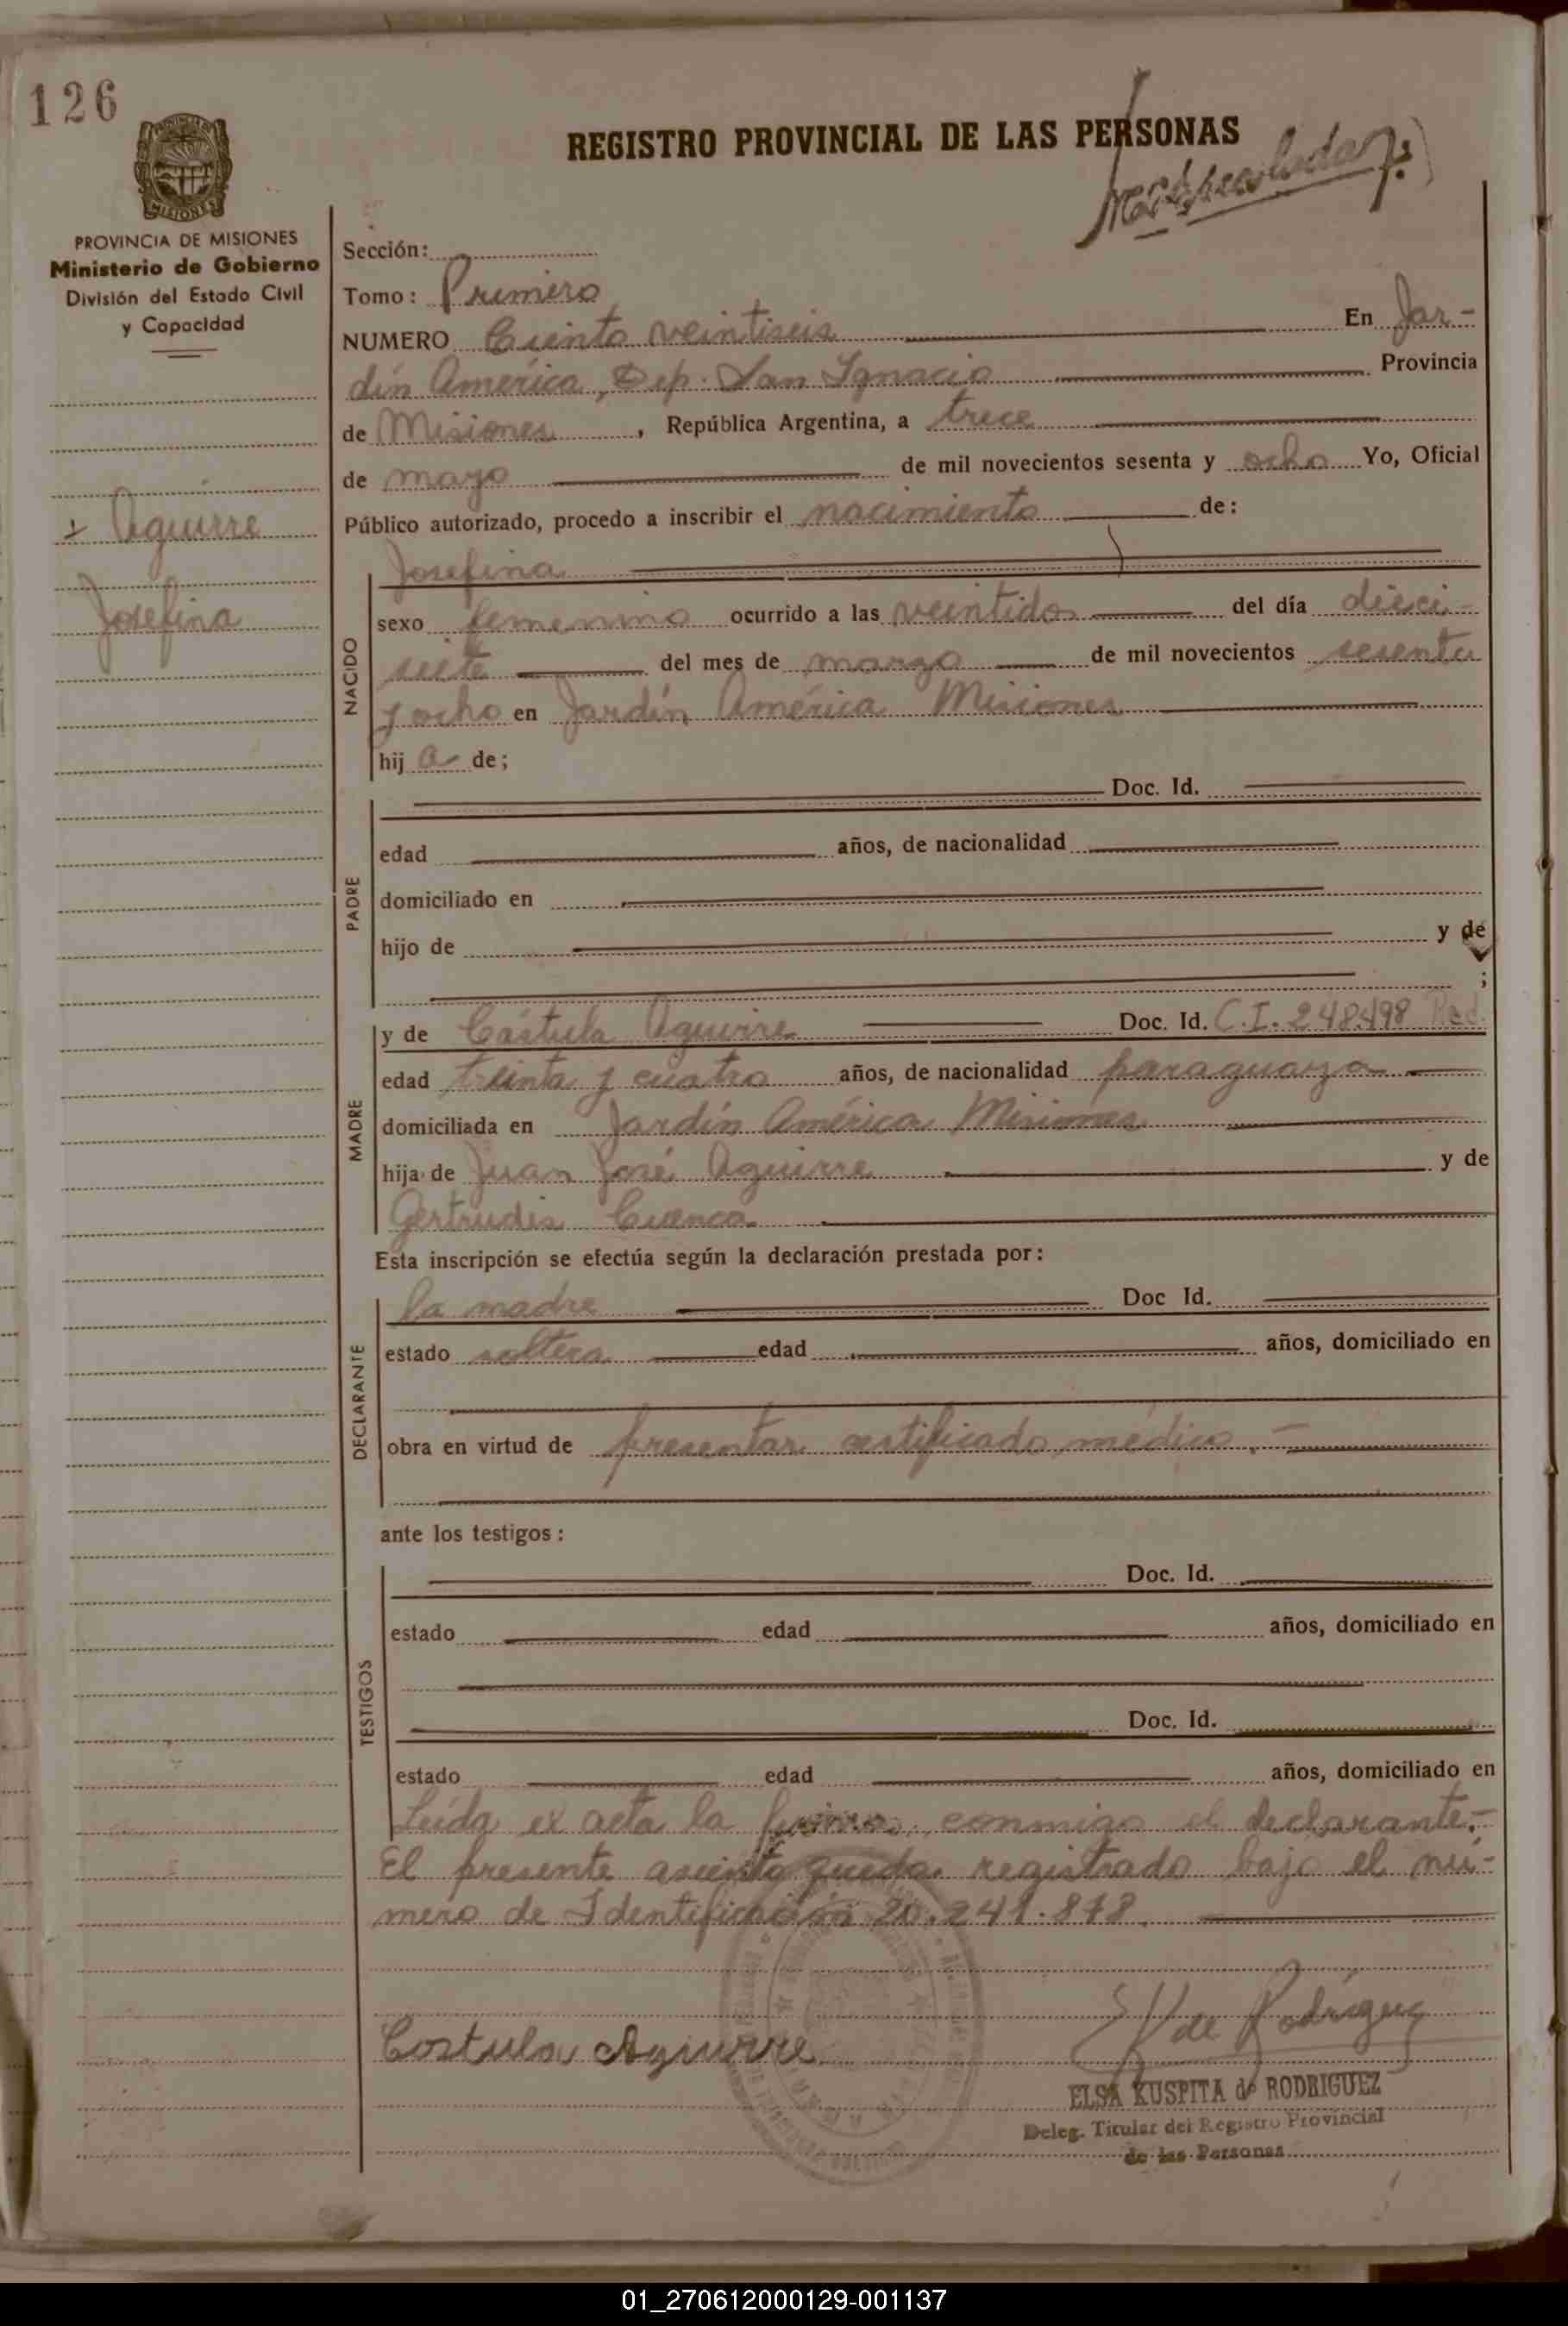 126
REGISTRO PROVINCIAL DE LAS PERSONAS
MISIONES
PROVINCIA DE MISIONES
Ministerio de Gobierno
División del Estado Civil
y Capacidad
Aguirre
Josefina
Sección:
Tomo: Primero
NUMERO Ciento veintiseis En Jar-
dín América, Dep. San Ignacio Provincia
de Misiones, República Argentina, a trece
de mayo de mil novecientos sesenta y ocho Yo, Oficial
Público autorizado, procedo a inscribir el nacimiento de:
NACIDO
Josefina
sexo femenino ocurrido a las veintidos del día dieci-
siete del mes de marzo de mil novecientos sesenta
y ocho en Jardín América Misiones
hija de;
PADRE
Doc. Id.
edad años, de nacionalidad
domiciliado en
hijo de y de
;
MADRE
y de Cástula Aguirre Doc. Id. C.I. 248498
edad treinta y cuatro años, de nacionalidad paraguaya
domiciliada en Jardín América Misiones
hija de Juan José Aguirre y de
Gertrudis Cuenca
Esta inscripción se efectúa según la declaración prestada por:
DECLARANTE
la madre Doc Id.
estado soltera edad años, domiciliado en
obra en virtud de presentar certificado médico.-
ante los testigos:
TESTIGOS
Doc. Id.
estado edad años, domiciliado en
Doc. Id.
estado edad años, domiciliado en
Leída el acta la firma conmigo el declarante.-
El presente asiento queda registrado bajo el nú-
mero de Identificación 20.241.878.
Costula Aguirre
E K de Rodríguez
ELSA KUSPITA de RODRIGUEZ
Deleg. Titular del Registro Provincial
de las Personas
01_270612000129-001137